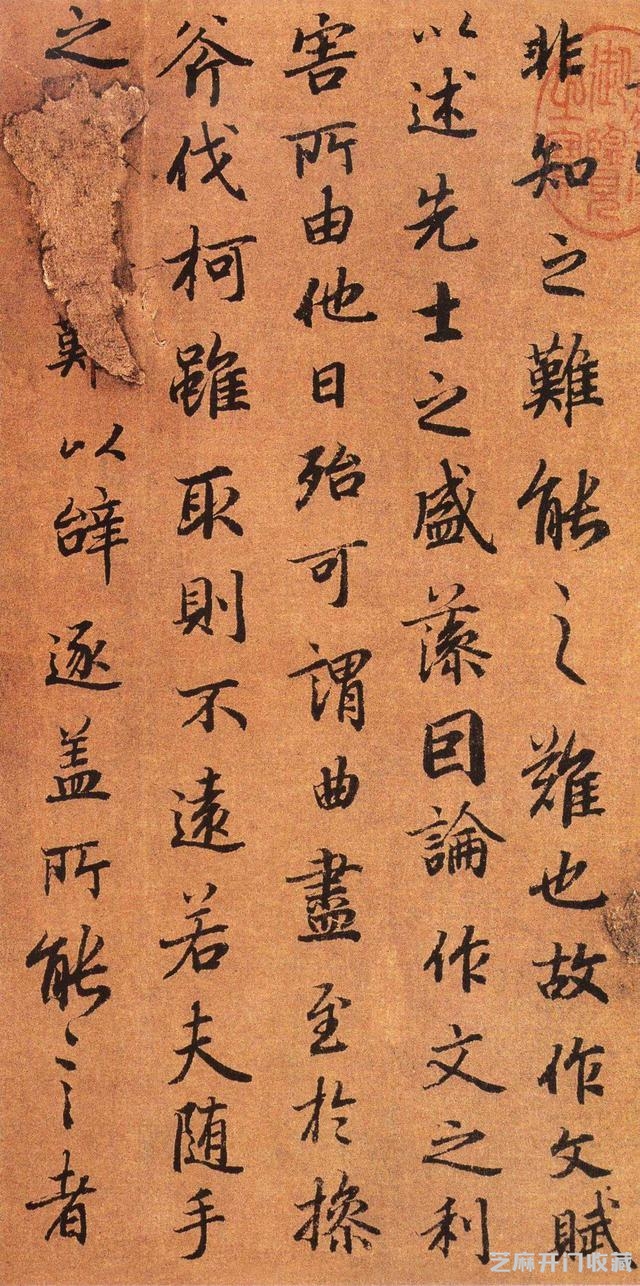 非知之難能之難也故作文賦
以述先士之盛藻因論作文之利
害所由他日殆可謂曲盡至於操
斧伐柯雖取則不遠若夫随手
之以辭逐盖所能言者
芝麻开门收藏